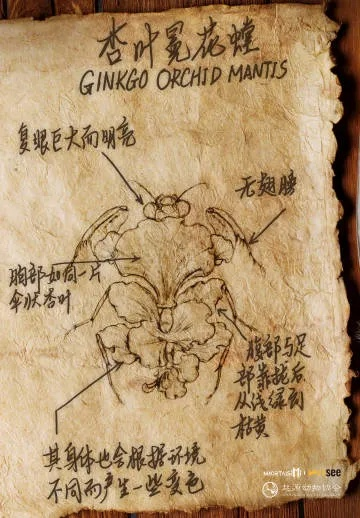 杏叶冕花螳
GINKGO ORCHID MANTIS
复眼巨大而明亮
无翅膀
胸部如同一片
伞状杏叶
腹部与足
部靠拢后
从浅绿到
枯黄
其身体也会根据环境
不同而产生一些变色
see